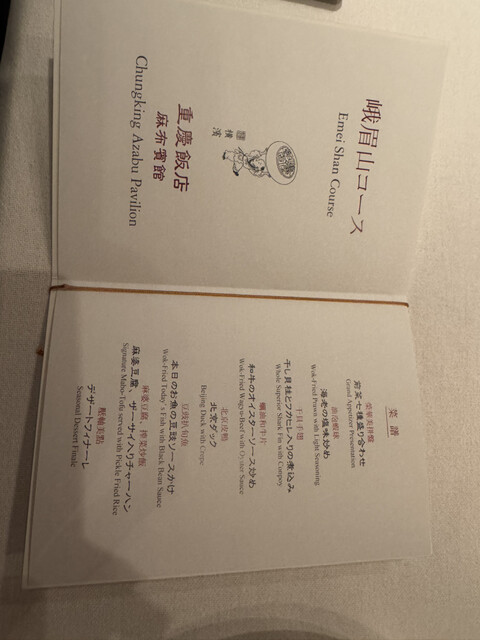 峨眉山コース
Emei Shan Course
横濱
重慶飯店
麻布賓館
Chungking Azabu Pavilion
菜譜
榮華美拼盤
前菜七種盛り合わせ
Grand Appetizer Presentation
海老の塩味炒め
Wok-Fried Prawn with Light Seasoning
干貝千翅
干し貝柱とフカヒレ入りの煮込み
Whole Superior Shark Fin with Conpoy
蠔油和牛片
和牛のオイスターソース炒め
Wok-Fried Wagyu-Beef with Oyster Sauce
北京皮鴨
北京ダック
Beijing Duck with Crepe
豆豉扒旬魚
本日のお魚の豆豉ソースかけ
Wok-Fried Today's Fish with Black Bean Sauce
麻婆豆腐、搾菜炒飯
麻婆豆腐、ザーサイ入りチャーハン
Signature Mabo-Tofu served with Pickle Fried Rice
壓軸美點
デザートフィナーレ
Seasonal Dessert Finale